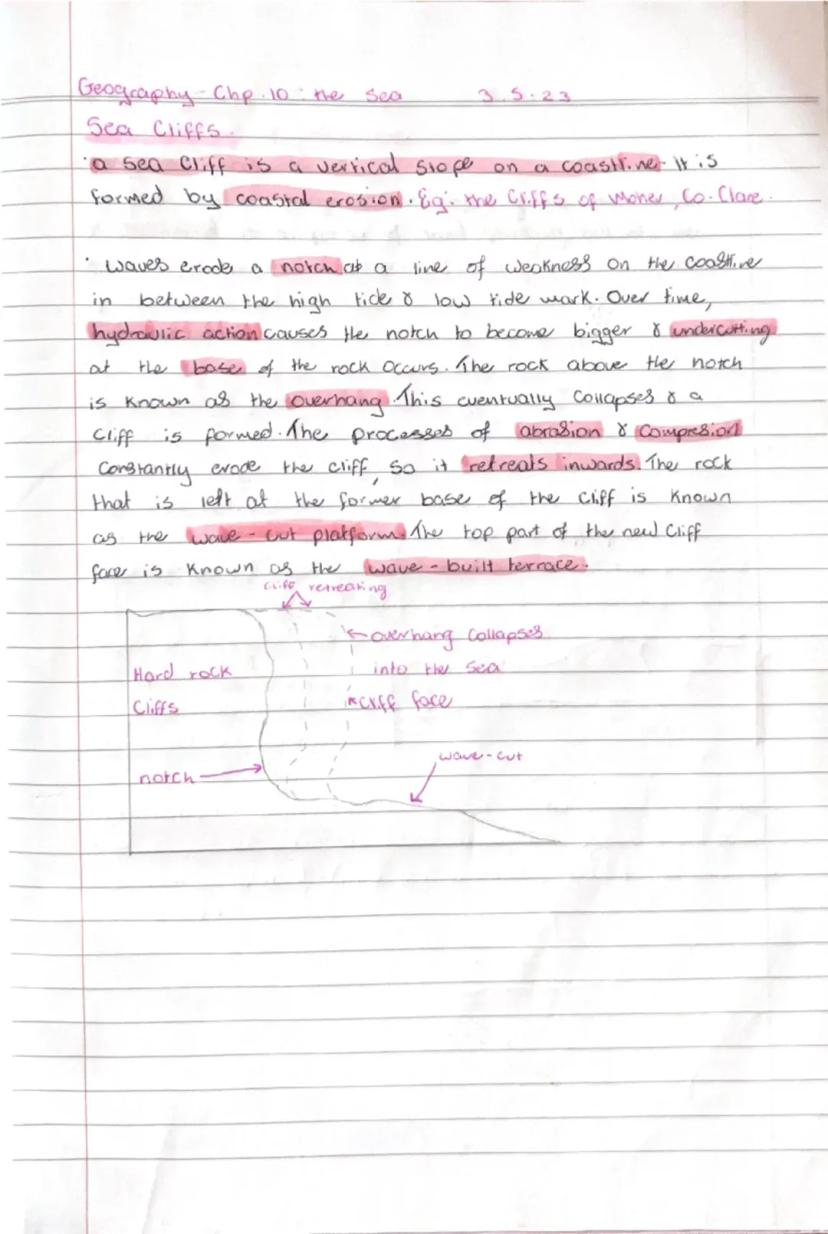 Geography - Chp. 10: the Sea 3.5.23
Sea Cliffs.
· a sea cliff is a vertical slope on a coastline. It is
formed by coastal erosion. Eg: the Cliffs of Moher, Co. Clare.
· Waves erode a notch at a line of weakness on the coastline
in between the high tide & low tide mark. Over time,
hydraulic action causes the notch to become bigger & undercutting
at the base of the rock occurs. The rock above the notch
is known as the overhang. This eventually collapses & a
cliff is formed. The processes of abrasion & compresion
constantly erode the cliff, so it retreats inwards. The rock
that is left at the former base of the cliff is known
as the wave-cut platform. The top part of the new cliff
face is known as the wave-built terrace.
cliff retreating
overhang collapses
into the sea
Hard rock
Cliffs
cliff face
wave-cut
notch